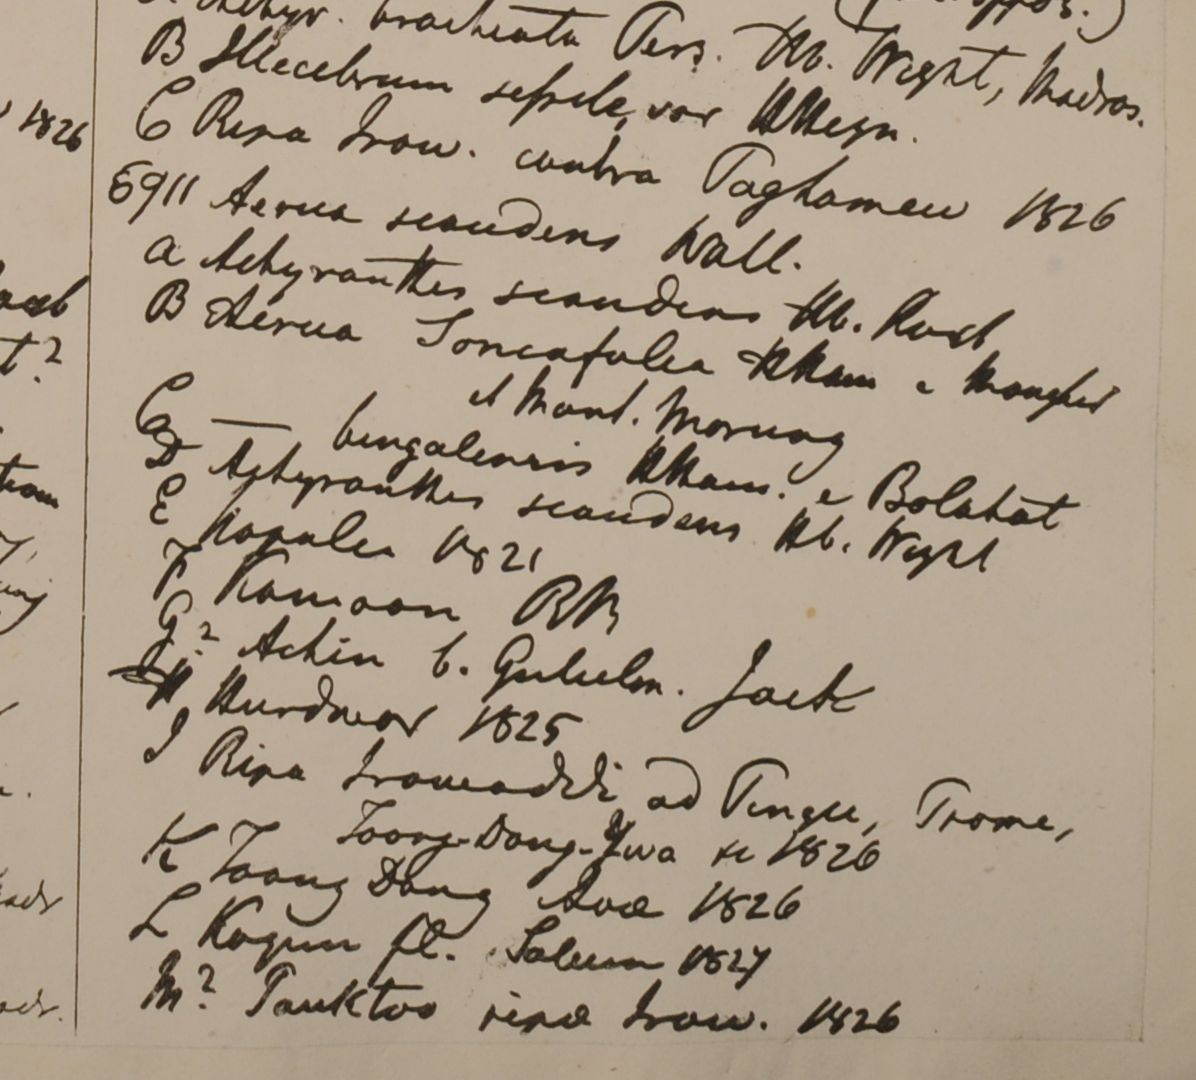 bracteata Pers. Hb. Wight, Madras.
B Illecebrum sessile, var HHeyn.
C Ripa Irow. contra Paghamew 1826
v 1826
6911 Aerua scandens Wall.
a Achyranthes scandens Hb. Roxb
B Aerua Soncafulea HHam e Monghir
et Mont. Morung
C — bengalensis HHam. e Bolahat
D Achyranthes scandens Hb. Wight
E Napalea 1821
F Kamaon RB
G? Achin b. Gulielm. Jack
H Hurdwar 1825
I Ripa Irowaddi ad Pingee, Prome,
Toong-Dong-Ywa &c 1826
K Toong Dong Avae 1826
L Kogun fl. Saluen 1827
M? Pauktoo ripae Irow. 1826